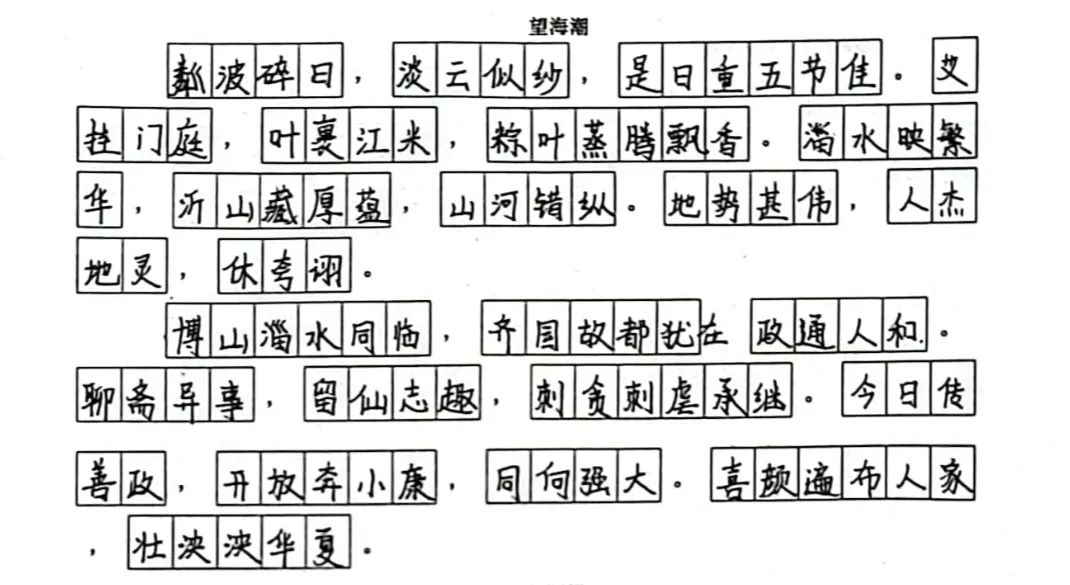 望海潮
粼波碎日，淡云似纱，是日重五节佳。艾
挂门庭，叶裹江米，粽叶蒸腾飘香。淄水映繁
华，沂山藏厚蕴，山河错纵。地势甚伟，人杰
地灵，休夸诩。
博山淄水同临，齐国故都犹在政通人和。
聊斋异事，留仙志趣，刺贪刺虐承继。今日传
善政，开放奔小康，同向强大。喜颜遍布人家
，壮泱泱华夏。